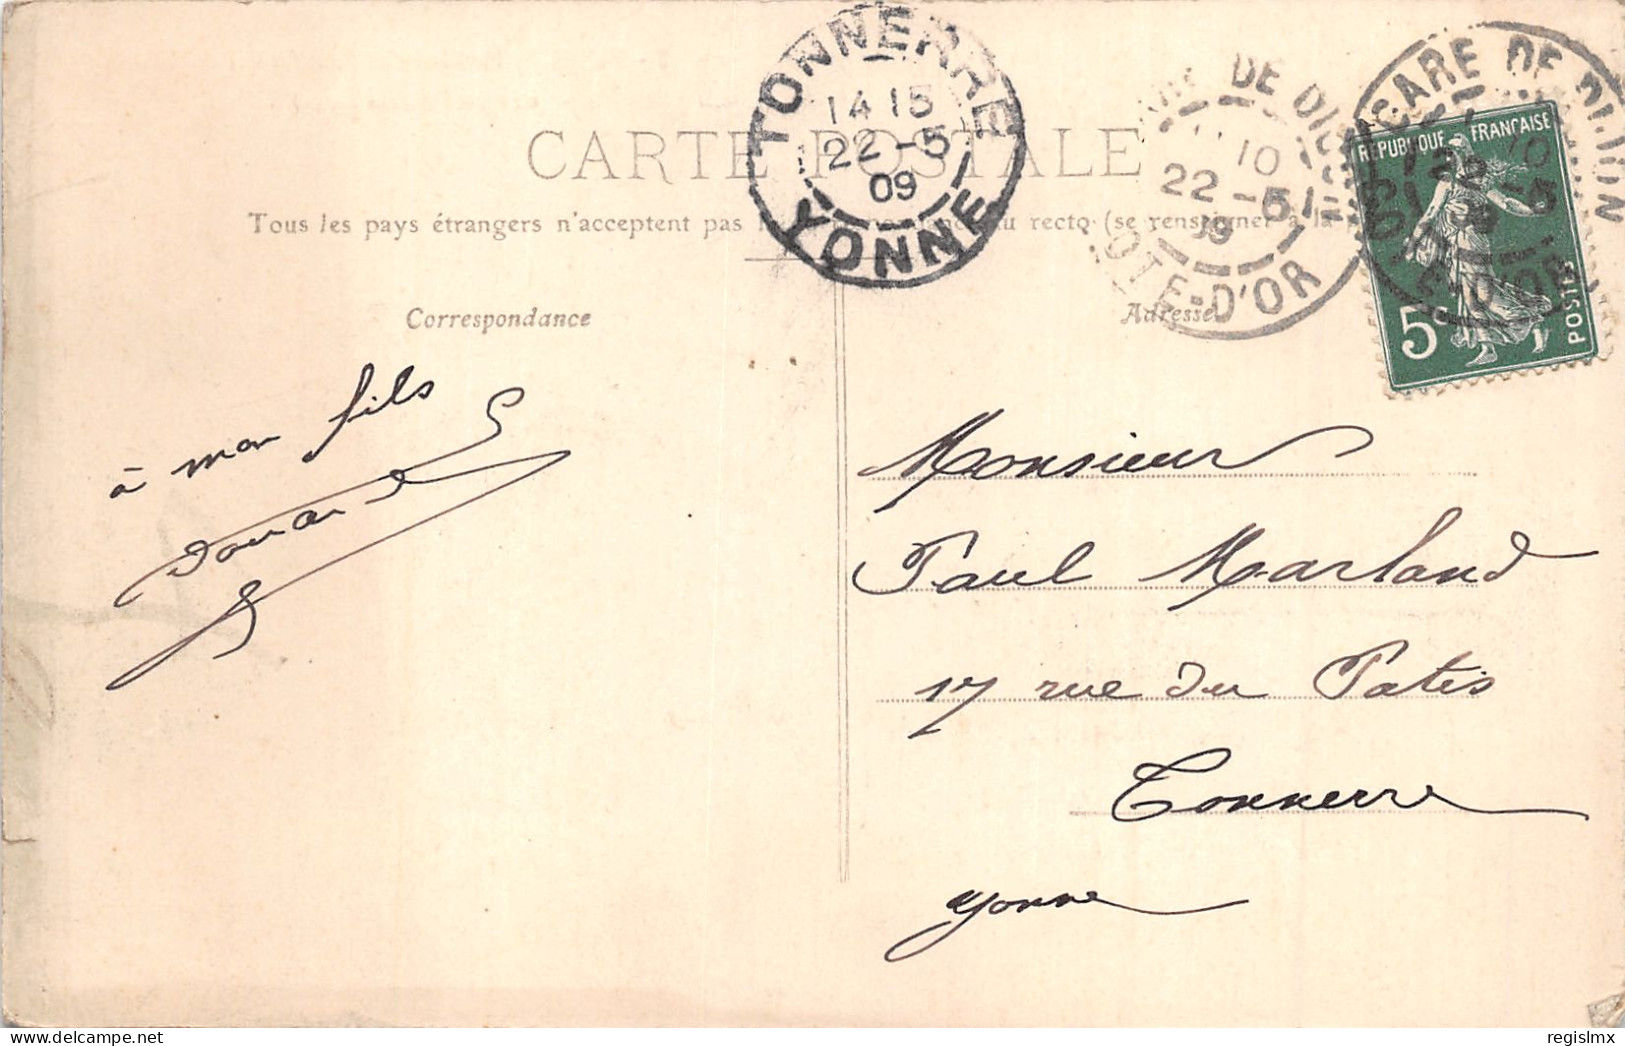 TONNERRE
14 15
22 - 5
09
YONNE
DE DIJ
10
22 - 5
09
OTE-D'OR
GARE DE DIJON
10
22 - 5
09
OTE-D'OR
REPUBLIQUE FRANÇAISE
5c
POSTES
CARTE POSTALE
Tous les pays étrangers n'acceptent pas au recto (se renseigner à la
Correspondance
Adresse
à mon fils
Monsieur
Paul Marland
17 rue du Patis
Tonnerre
Yonne
regislmx